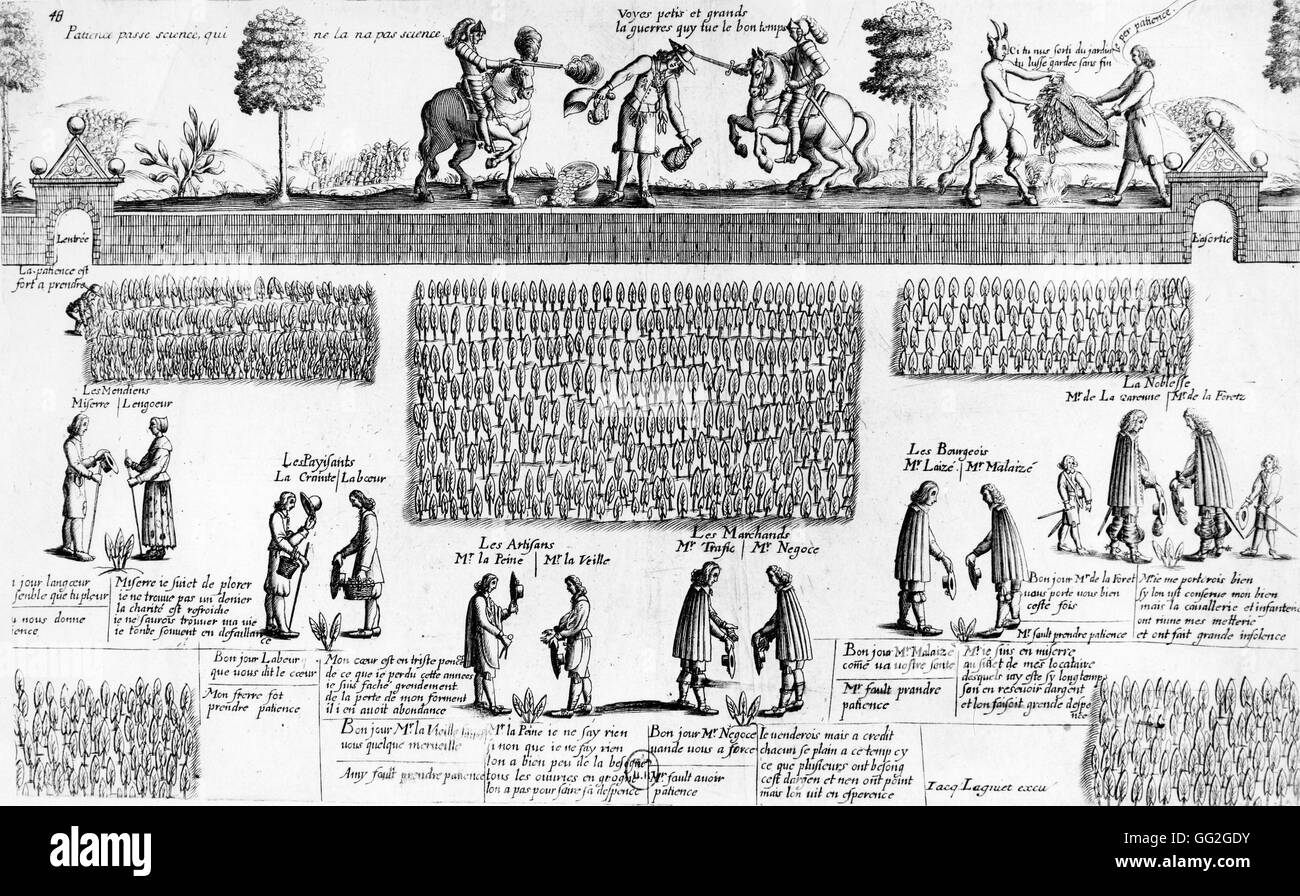 48
Patience passe science, qui ne la na pas science
Voyes petis et grands
la guerres quy tue le bon temps
Ci tu nus sorti du jardin
tu lusse gardec sans fin
per patience
Lentrée
La sortie
La patience est
fort a prendre
Les Mendiens
Miserre | Lengoeur
Les Payisants
La Crainte | Labœur
Les Artisans
Mr. la Peine | Mr. la Veille
Les Marchands
Mr. Trafic | Mr. Negoce
Les Bourgeois
Mr. Laizé | Mr. Malaizé
La Noblesse
Mr. de La Garenne | Mr. de la Foretz
jour langœur
semble que tu pleur
nous donne
ience
Miserre ie suiet de plorer
ie ne trouue pas un denier
la charité est refroidie
ie ne saurois trouuer ma vie
ie tonbe souuent en defaillance
Bon jour Labeur
que vous dit le cœur
Mon frerre fot
prendre patience
Mon cœur est en triste pence
de ce que ie perdu cette annees
ie suis faché grendement
de la perte de mon forment
il i en auoit abondance
Bon jour Mr. la Vieille
vous quelque merveille
Amy fault prendre patience
Mr. la Peine ie ne say rien
si non que ie ne say rien
lon a bien peu de la besogne
tous les ouuires en grogne
lon a pas pour faire sa despence
Bon jour Mr. Negoce
uande vous a force
Mr. fault auoir
patience
Ie venderois mais a credit
chacun se plain a ce temp cy
ce que plusieurs ont besong
cest dargen et nen ont point
mais lon uit en esperence
Bon jour Mr. Malaizé
come va vostre sente
Mr. fault prandre
patience
Mr. ie suis en miserre
au suiet de mes locataire
desquels iay este sy longtemps
san en reseuoir dargent
et lon faisoit grende despe
nce
Bon jour Mr. de la Foret
vous porte vous bien
ceste fois
Mr. fault prendre patience
Mr. ie me porterois bien
sy lon ust conserue mon bien
mais la cauallerie et infanterie
ont riune mes metterie
et ont fait grande insolence
Iacq Lagniet excu
alamy stock photo
GG2GDY
www.alamy.com